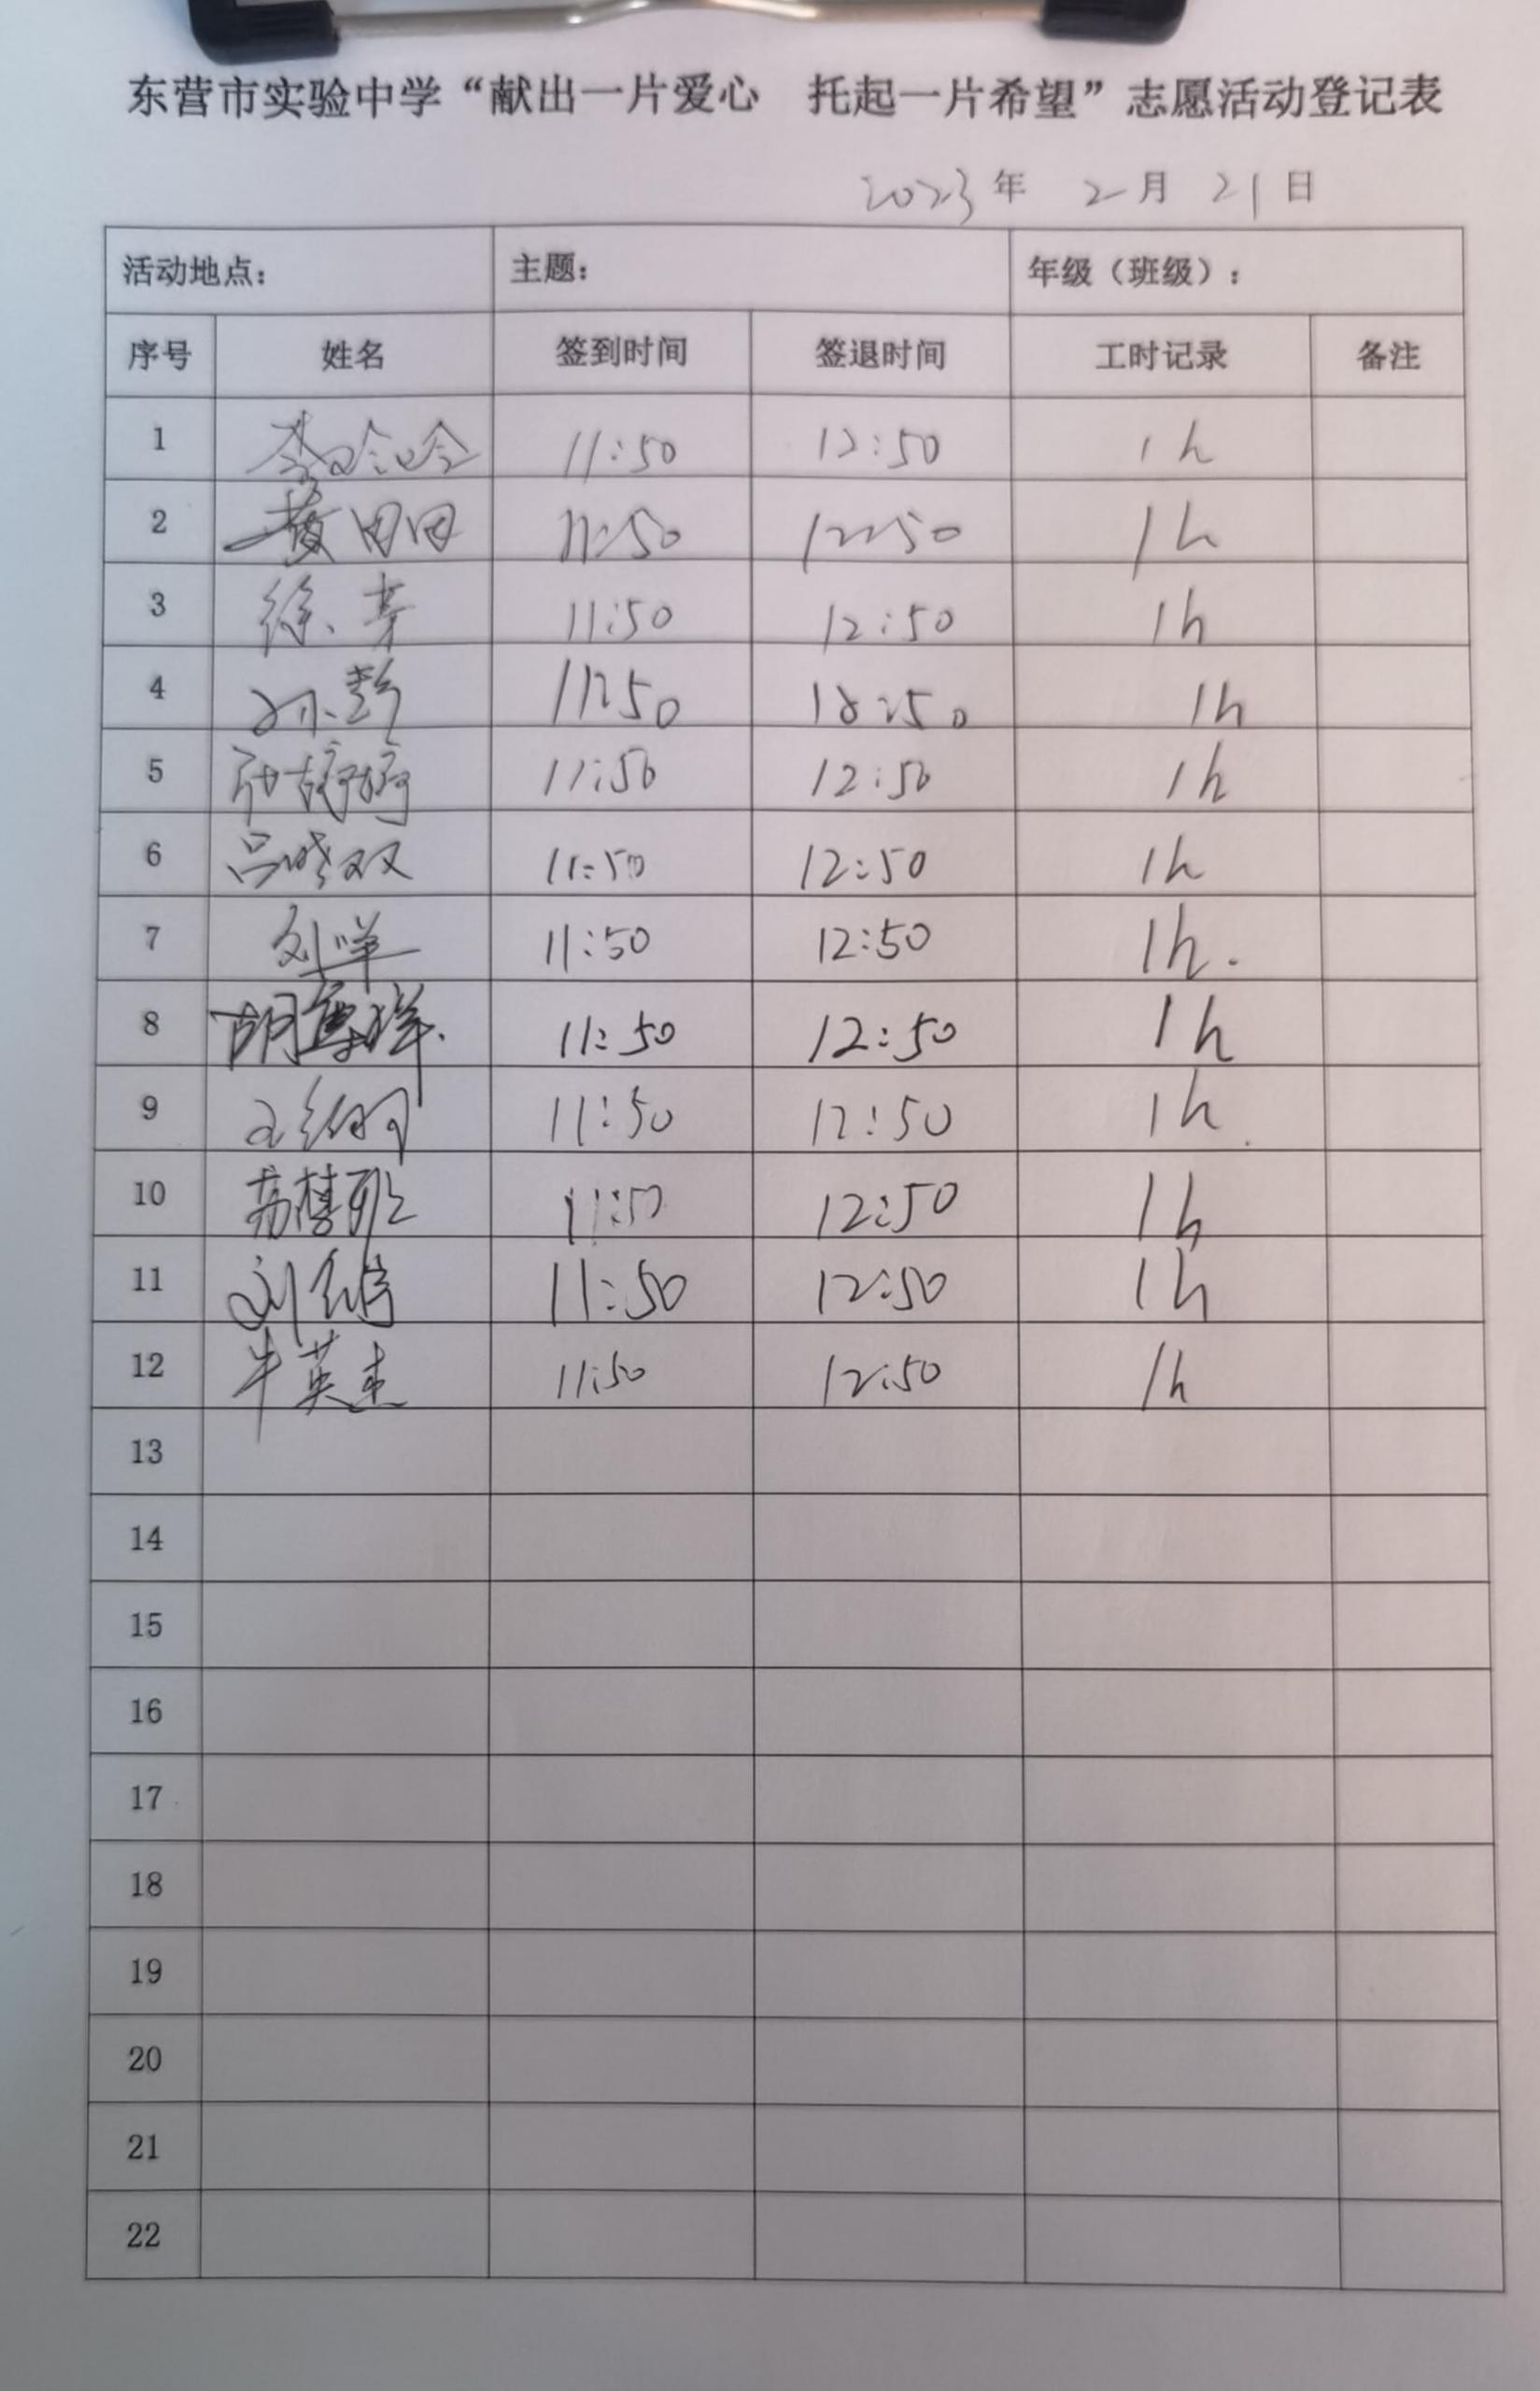 东营市实验中学“献出一片爱心 托起一片希望”志愿活动登记表
2023年 2月 21日
活动地点: 主题: 年级（班级）:
序号 姓名 签到时间 签退时间 工时记录 备注
1 李哈哈 11:50 12:50 1h
2 黄田田 11:50 12:50 1h
3 徐 11:50 12:50 1h
4 孙 11:50 12:50 1h
5 婷婷 11:50 12:50 1h
6 吕晓双 11:50 12:50 1h
7 刘 11:50 12:50 1h.
8 胡 祥 11:50 12:50 1h
9 王 11:50 12:50 1h
10 11:50 12:50 1h
11 刘 11:50 12:50 1h
12 牛英杰 11:50 12:50 1h
13
14
15
16
17
18
19
20
21
22